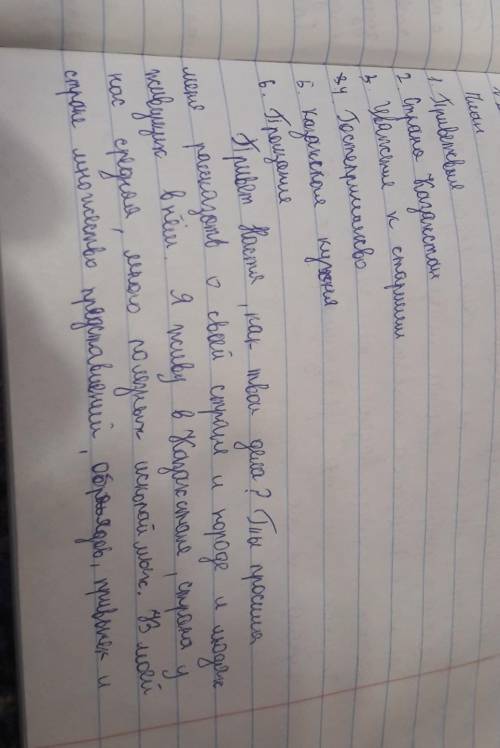 План
1. Приветвие
2. Страна Казахстан
3. Уважение к старшим
4. Гостеприимсво
5 Казахская кухня
6. Прощание
Привет Настя, как твои дела? Ты просила
меня рассказать о своей стране и народе и людях
живущих в нём. Я живу в Казахстане, страна у
нас средняя, много полезных ископаймых. Уз моей
стране множество представлений, обрядов, привычек и